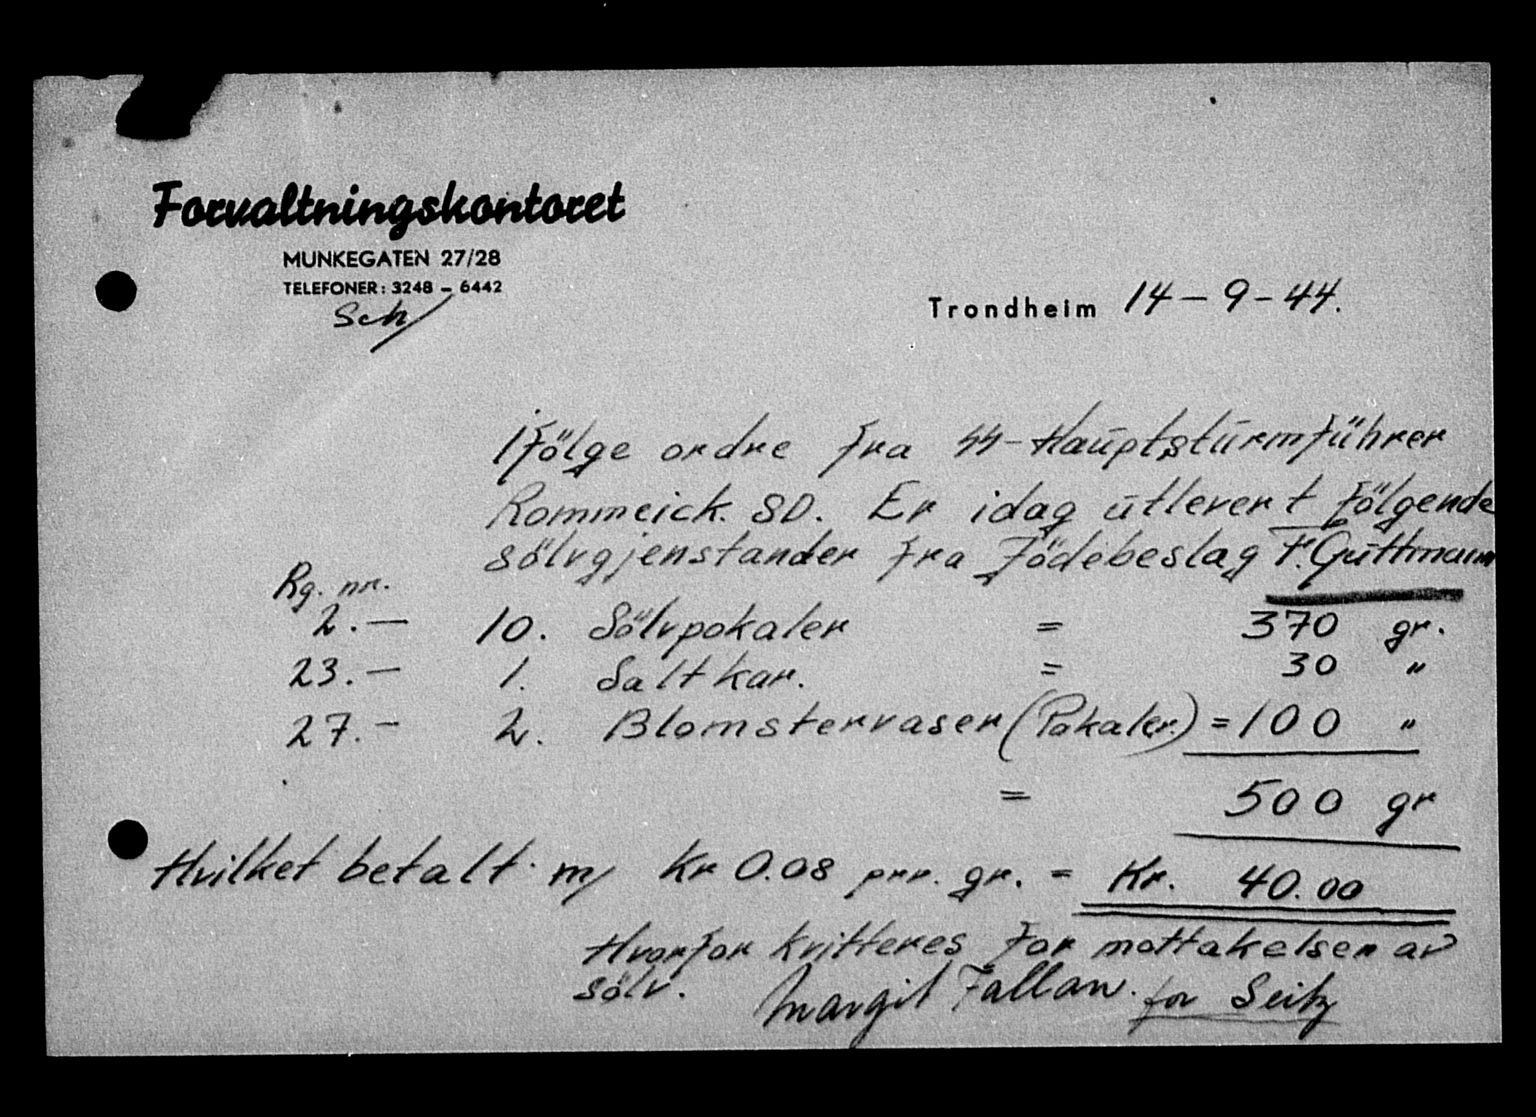 Forvaltningskontoret
MUNKEGATEN 27/28
TELEFONER: 3248 - 6442
Sch/
Trondheim 14-9-44.
Ifölge ordre fra SS-Hauptsturmführer
Rommeick. SD. Er idag utlevert følgende
sölvgjenstander fra Jödebeslag F. Guttmann
Rg. nr.
2.— 10. Sölvpokaler = 370 gr.
23.— 1. Saltkar. = 30 "
27.- 2. Blomstervaser (Pokaler.) = 100 "
= 500 gr
Hvilket betalt m/ Kr 0.08 prr. gr. = Kr. 40.00
Hvorfor kvitteres for mottakelsen av
sölv.
Margit Fallan. for Seitz